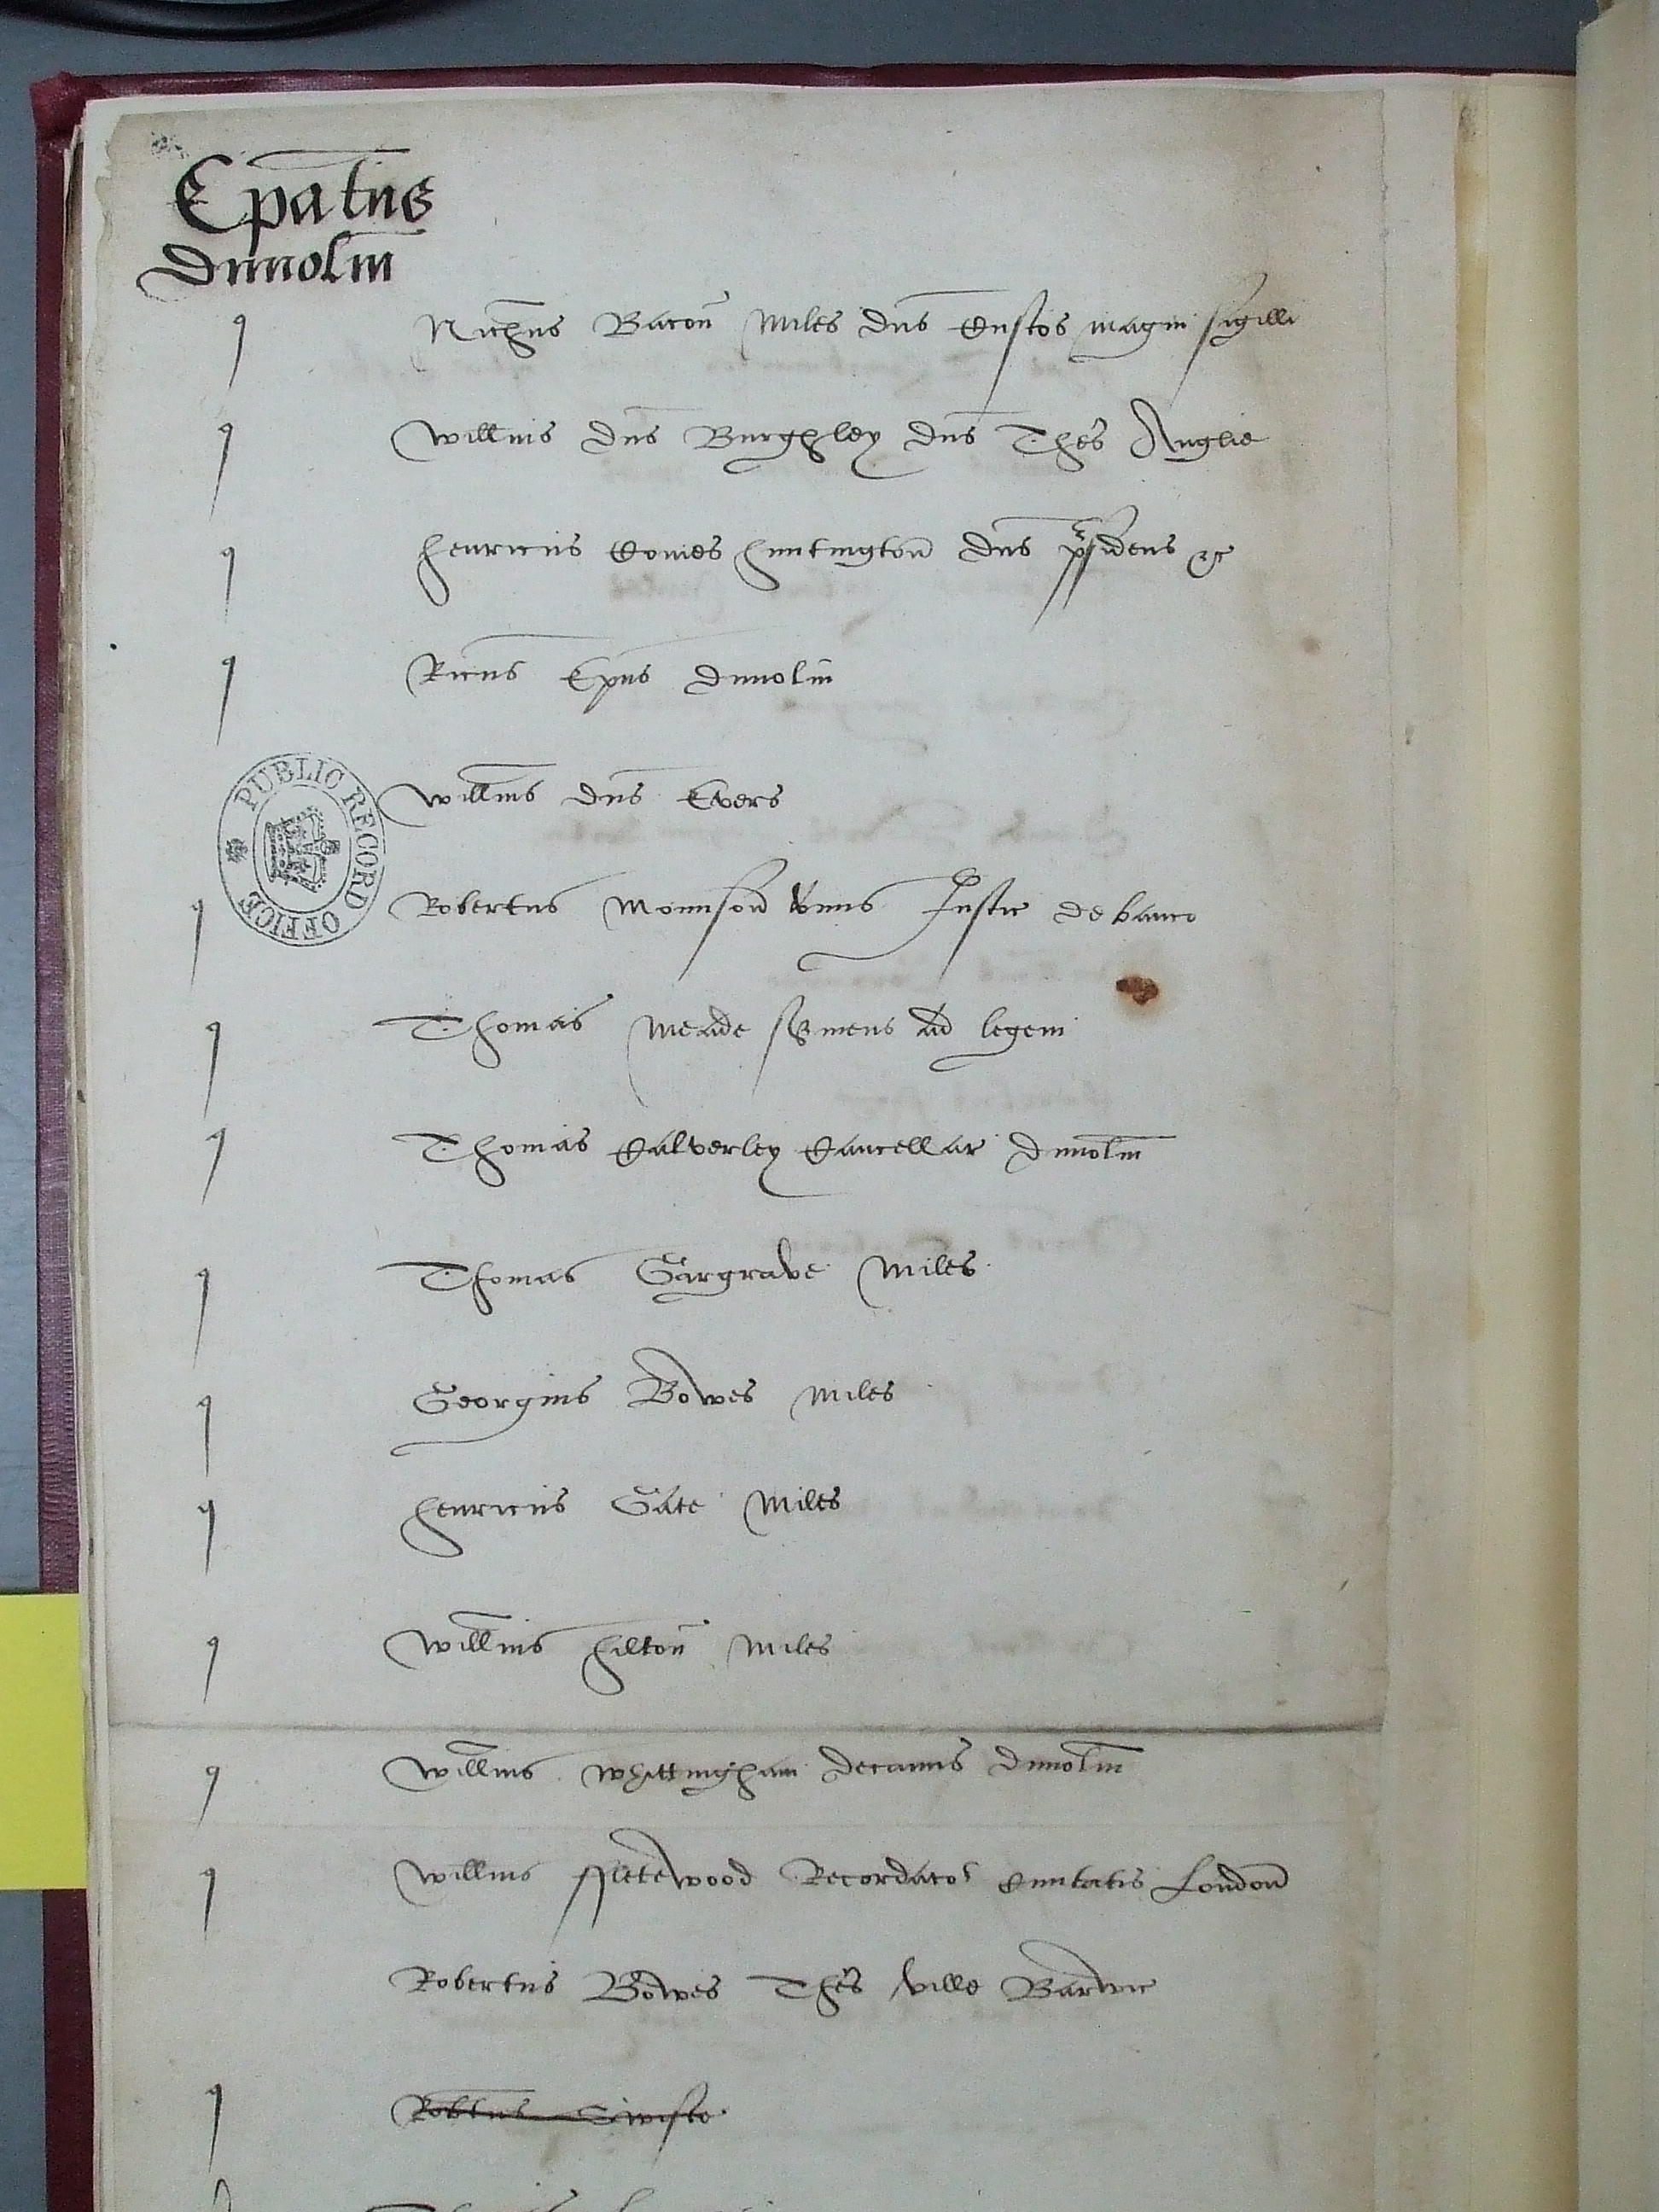 Epatus
Dunolm
Nichus Bacon Miles dns Custos magni sigilli
Willms dns Burghley dns Thes Anglie
Henricus Comes Huntington dns presidens &c
Ricus Epus Dunolm
Willms dns Evers
PUBLIC RECORD OFFICE
Robertus Mounson unus Justic de banco
Thomas Meade serviens ad legem
Thomas Calverley Cancellar Dunolm
Thomas Gargrave Miles
Georgius Bowes Miles
Henricus Gate Miles
Willms Hilton Miles
Willms Whittingham decanus Dunolm
Willms ffletewood Recordator Civitatis London
Robertus Bowes Thes ville Barwic
Robtus